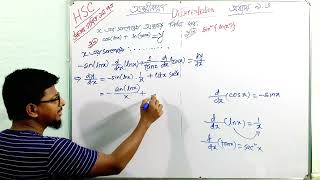 HSC
অন্তরীকরণ
Differentiation
অধ্যায় ৯.৩
x এর সাপেক্ষে অন্তরজ নির্ণয় কর:
cos(lnx) + ln(tanx) = y
x এর সাপেক্ষে
-sin(lnx) d/dx (lnx) + 1/tanx d/dx (tanx) = dy/dx
⇒ dy/dx = -sin(lnx) · 1/x +
= - sin(lnx)/x +
d/dx (cosx) = -sinx
d/dx (lnx) = 1/x
d/dx (tanx) = sec²x